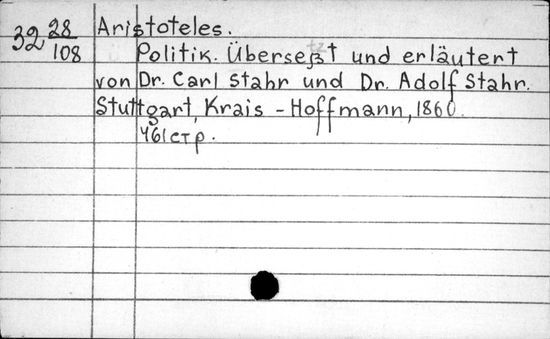 32 28/108
Aristoteles.
Politik. Überseßt und erläutert
von Dr. Carl Stahr und Dr. Adolf Stahr.
Stuttgart, Krais - Hoffmann, 1860.
461 стр.